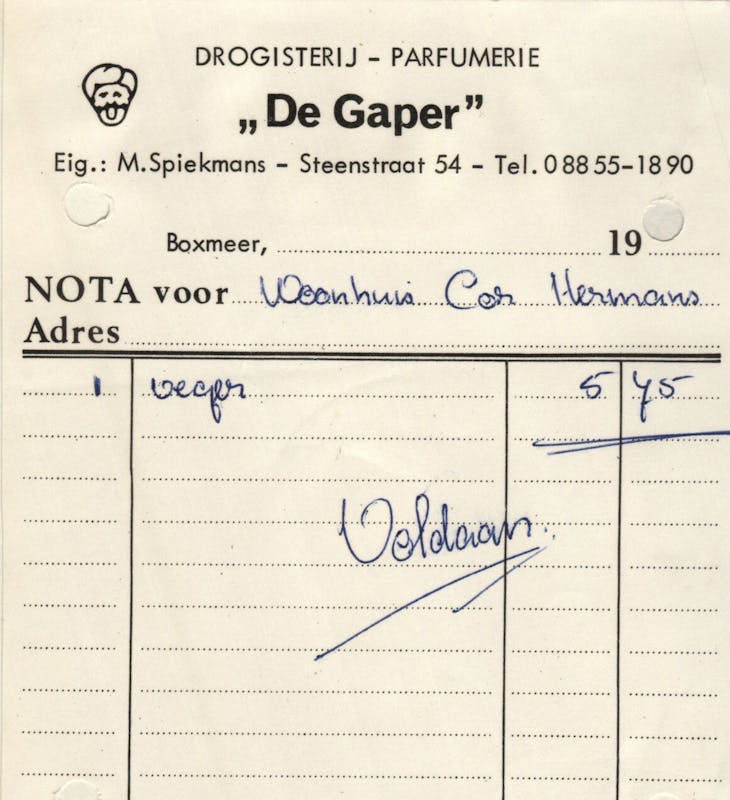 DROGISTERIJ – PARFUMERIE
„De Gaper”
Eig.: M.Spiekmans – Steenstraat 54 – Tel. 08855-1890
Boxmeer, 19
NOTA voor Woonhuis Cor Hermans
Adres
1 veger 5 75
Voldaan.